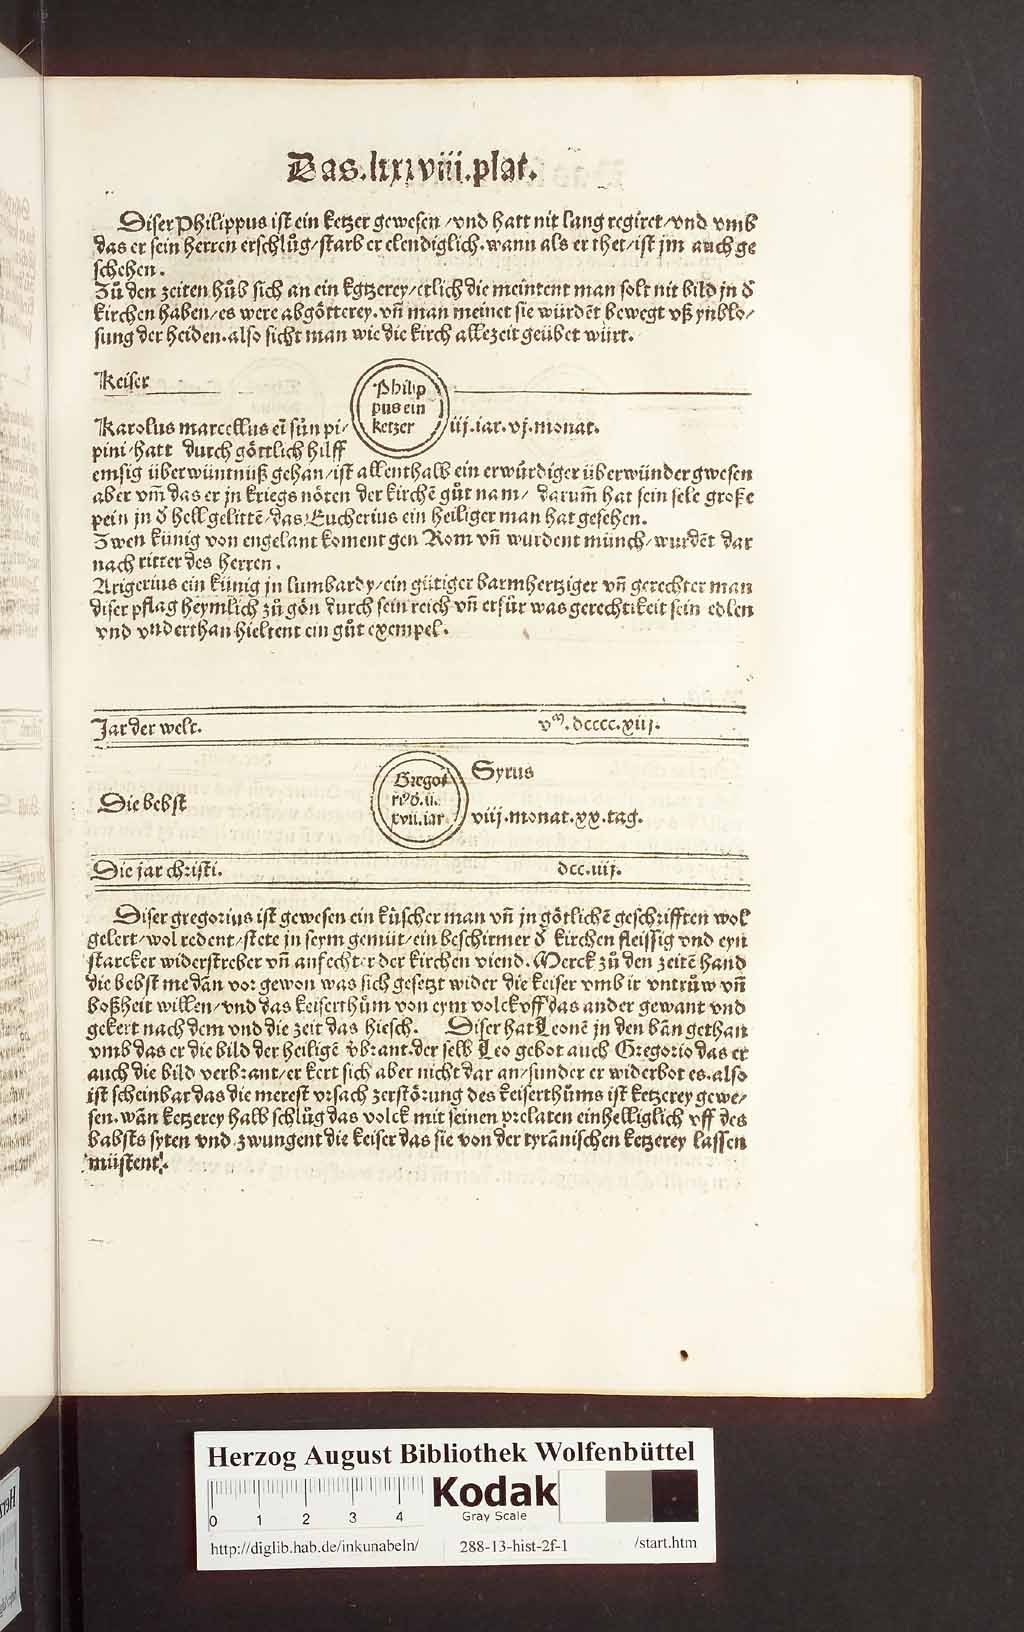 Das.lxxviii.plat.
Diser Philippus ist ein ketzer gewesen/vnd hatt nit lang regiret/vnd vmb
das er sein herren erschlůg/starb er elendiglich.wann als er thet/ist jm auch ge
schehen.
Zů den zeiten hůb sich an ein kgtzerey/etlich die meintent man solt nit bild jn d᷑
kirchen haben/es were abgötterey.vn̄ man meinet sie würdēt bewegt vß ynblo/
sung der heiden.also sicht man wie die kirch allezeit geübet würt.
Keiser
Philip
pus ein
ketzer
Karolus marcellus eī sůn pi/
iij.iar.vj.monat.
pini/hatt durch göttlich hilff
emsig überwüntnüß gehan/ist allenthalb ein erwürdiger überwünder gwesen
aber vm̄ das er jn kriegs nöten der kirchē gůt nam/ darum̄ hat sein sele große
pein jn d᷑ hell gelittē/das Eucherius ein heiliger man hat gesehen.
Zwen künig von engelant koment gen Rom vn̄ wurdent münch/wurdēt dar
nach ritter des herren.
Arigerius ein künig jn lumbardy/ein gütiger barmhertziger vn̄ gerechter man
diser pflag heymlich zů gön durch sein reich vn̄ erfür was gerechtikeit sein edlen
vnd vnderthan hieltent ein gůt exempel.
Jar der welt. vᵐ.dcccc.xiij.
Die bebst
Gregori
us d᷑.ii.
xvii.iar
Syrus
viij.monat.xx.tag.
Die jar christi. dcc.iiij.
Diser gregorius ist gewesen ein küscher man vn̄ jn götlichē geschrifften wol
gelert/wol redent/stete jn seym gemüt/ein beschirmer d᷑ kirchen fleissig vnd eyn
starcker widerstreber vn̄ anfechter der kirchen viend. Merck zů den zeitē hand
die bebst me dān vor gewon was sich gesetzt wider die keiser vmb ir vntrůw vn̄
boßheit willen/vnd das keiserthům von eym volck vff das ander gewant vnd
gekert nach dem vnd die zeit das hiesch. Diser hat Leonē jn den bān gethan
vmb das er die bild der heiligē v᷑brant.der selb Leo gebot auch Gregorio das er
auch die bild verbrant/er kert sich aber nicht dar an/sunder er widerbot es.also
ist scheinbar das die merest vrsach zerstörung des keiserthůms ist ketzerey gewe/
sen.wān ketzerey halb schlůg das volck mit seinen prelaten einhelliglich vff des
babsts syten vnd zwungent die keiser das sie von der tyrānischen ketzerey lassen
müstent.
Herzog August Bibliothek Wolfenbüttel
0 1 2 3 4
Kodak
Gray Scale
http://diglib.hab.de/inkunabeln/ 288-13-hist-2f-1 /start.htm